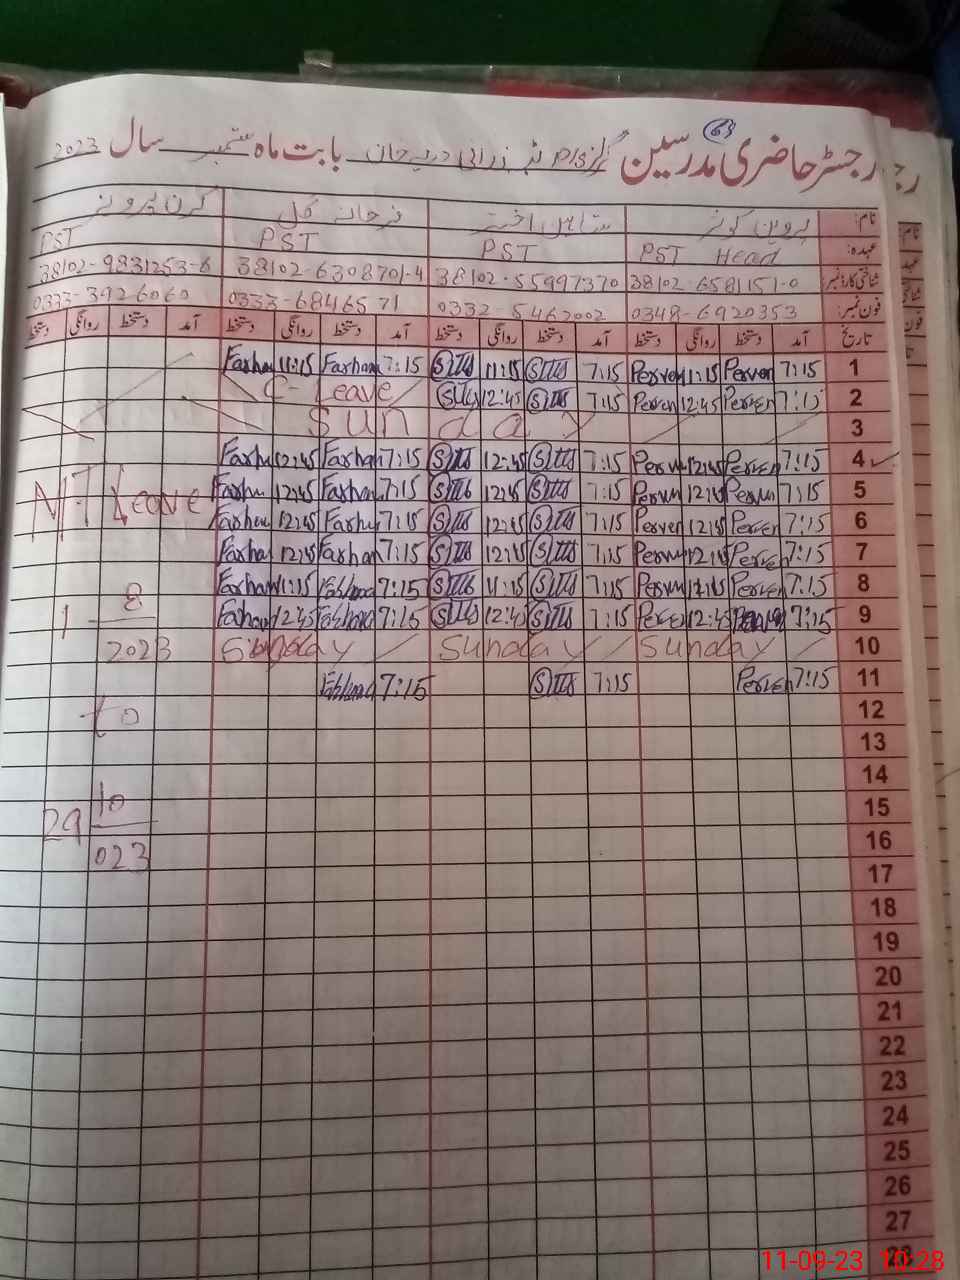 63
رجسٹر حاضری مدرسین بابت ماہ ستمبر سال 2023
نام: پروین کوثر شاہین اختر فرحانہ گل کرن پرویز
عہدہ: PST Head PST PST PST
شناختی کارڈ نمبر: 38102-6581151-0 38102-5599737-0 38102-6308701-4 38102-9831253-8
فون نمبر: 0348-6920353 0332-5462002 0333-6846571 0333-3926060
تاریخ آمد دستخط روانگی دستخط آمد دستخط روانگی دستخط آمد دستخط روانگی دستخط آمد دستخط روانگی دستخط
1 7:15 Perven 11:15 Perven 7:15 11:15 7:15 Farhan 11:15 Farhan
2 7:15 Perven 12:45 Perven 7:15 12:45 C-Leave
3 Sunday
4 7:15 Perven 12:45 Perven 7:15 12:45 7:15 Farhan 12:45 Farhan
5 7:15 Perven 12:45 Perven 7:15 12:45 7:15 Farhan 12:45 Farhan
6 7:15 Perven 12:45 Perven 7:15 12:45 7:15 Farhan 12:45 Farhan
7 7:15 Perven 12:45 Perven 7:15 12:45 7:15 Farhan 12:45 Farhan
8 7:15 Perven Perven 7:15 11:15 7:15 11:15 Farhan
9 7:15 12:45 Perven 7:15 12:45 7:15 12:45 Farhan
10 Sunday Sunday Sunday
11 7:15 Perven 7:15 7:15
Leave
1 - 8
2023
to
29 10
023
12
13
14
15
16
17
18
19
20
21
22
23
24
25
26
27
28
11-09-23 10:28